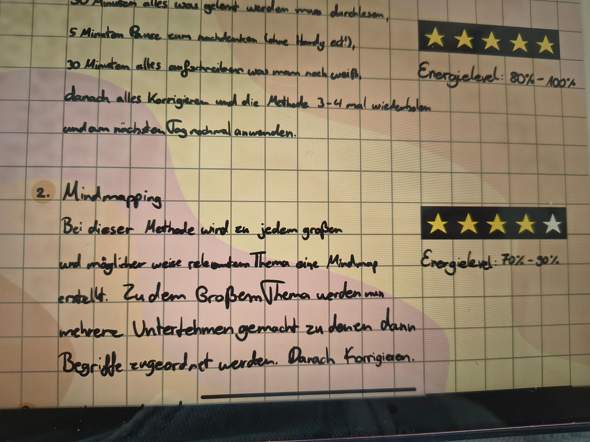 30 Minuten alles was gelernt werden muss durchlesen,
5 Minuten Pause zum nachdenken (ohne Handy ect.),
30 Minuten alles aufschreiben was man noch weiß,
danach alles Korrigieren und die Methode 3-4 mal wiederholen
und am nächsten Tag nochmal anwenden.
Energielevel: 80%-100%
2. Mindmapping
Bei dieser Methode wird zu jedem großen
und möglicher weise relevanten Thema eine Mindmap
erstellt. Zu dem Großem Thema werden nun
mehrere Unterthemen gemacht zu denen dann
Begriffe zugeordnet werden. Danach Korrigieren.
Energielevel: 70%-90%